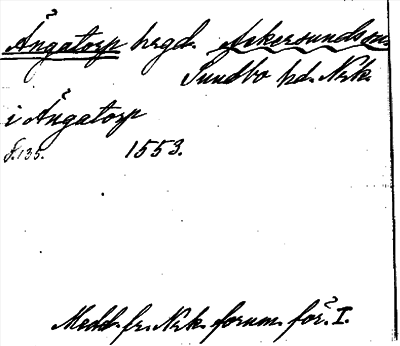 Ångatorp hrgd. Askersunds sn.
Sundbo hd. Nrk.
i Ångatorp
S. 135. 1553.
Medd. fr. Nrk. fornm. för. I.